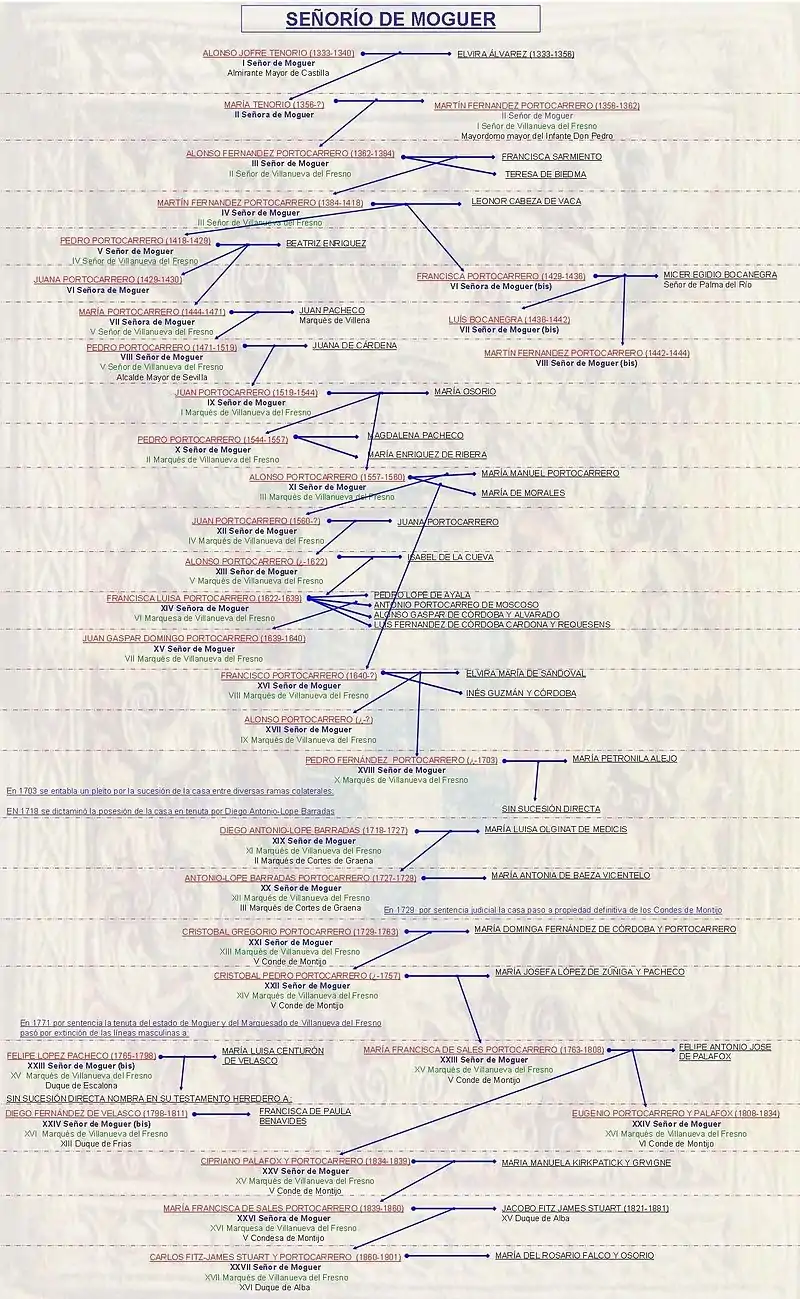 SEÑORÍO DE MOGUER
ALONSO JOFRE TENORIO (1333-1340)
I Señor de Moguer
Almirante Mayor de Castilla
ELVIRA ÁLVAREZ (1333-1356)
MARÍA TENORIO (1356-?)
II Señora de Moguer
MARTÍN FERNANDEZ PORTOCARRERO (1356-1362)
II Señor de Moguer
I Señor de Villanueva del Fresno
Mayordomo mayor del Infante Don Pedro
ALONSO FERNANDEZ PORTOCARRERO (1362-1384)
III Señor de Moguer
II Señor de Villanueva del Fresno
FRANCISCA SARMIENTO
TERESA DE BIEDMA
MARTÍN FERNANDEZ PORTOCARRERO (1384-1418)
IV Señor de Moguer
III Señor de Villanueva del Fresno
LEONOR CABEZA DE VACA
PEDRO PORTOCARRERO (1418-1429)
V Señor de Moguer
IV Señor de Villanueva del Fresno
BEATRIZ ENRIQUEZ
JUANA PORTOCARRERO (1429-1430)
VI Señora de Moguer
FRANCISCA PORTOCARRERO (1429-1436)
VI Señora de Moguer (bis)
MICER EGIDIO BOCANEGRA
Señor de Palma del Río
MARÍA PORTOCARRERO (1444-1471)
VII Señora de Moguer
V Señor de Villanueva del Fresno
JUAN PACHECO
Marqués de Villena
LUÍS BOCANEGRA (1436-1442)
VII Señor de Moguer (bis)
PEDRO PORTOCARRERO (1471-1519)
VIII Señor de Moguer
V Señor de Villanueva del Fresno
Alcalde Mayor de Sevilla
JUANA DE CÁRDENA
MARTÍN FERNANDEZ PORTOCARRERO (1442-1444)
VIII Señor de Moguer (bis)
JUAN PORTOCARRERO (1519-1544)
IX Señor de Moguer
I Marqués de Villanueva del Fresno
MARÍA OSORIO
PEDRO PORTOCARRERO (1544-1557)
X Señor de Moguer
II Marqués de Villanueva del Fresno
MAGDALENA PACHECO
MARÍA ENRIQUEZ DE RIBERA
ALONSO PORTOCARRERO (1557-1560)
XI Señor de Moguer
III Marqués de Villanueva del Fresno
MARÍA MANUEL PORTOCARRERO
MARÍA DE MORALES
JUAN PORTOCARRERO (1560-?)
XII Señor de Moguer
IV Marqués de Villanueva del Fresno
JUANA PORTOCARRERO
ALONSO PORTOCARRERO (¿-1622)
XIII Señor de Moguer
V Marqués de Villanueva del Fresno
ISABEL DE LA CUEVA
FRANCISCA LUISA PORTOCARRERO (1622-1639)
XIV Señora de Moguer
VI Marquesa de Villanueva del Fresno
PEDRO LOPE DE AYALA
ANTONIO PORTOCARREO DE MOSCOSO
ALONSO GASPAR DE CÓRDOBA Y ALVARADO
LUIS FERNANDEZ DE CORDOBA CARDONA Y REQUESENS
JUAN GASPAR DOMINGO PORTOCARRERO (1639-1640)
XV Señor de Moguer
VII Marqués de Villanueva del Fresno
FRANCISCO PORTOCARRERO (1640-?)
XVI Señor de Moguer
VIII Marqués de Villanueva del Fresno
ELVIRA MARÍA DE SANDOVAL
INÉS GUZMÁN Y CÓRDOBA
ALONSO PORTOCARRERO (¿-?)
XVII Señor de Moguer
IX Marqués de Villanueva del Fresno
PEDRO FERNÁNDEZ PORTOCARRERO (¿-1703)
XVIII Señor de Moguer
X Marqués de Villanueva del Fresno
MARÍA PETRONILA ALEJO
En 1703 se entabla un pleito por la sucesión de la casa entre diversas ramas colaterales.
SIN SUCESIÓN DIRECTA
EN 1718 se dictaminó la posesión de la casa en tenuta por Diego Antonio-Lope Barradas
DIEGO ANTONIO-LOPE BARRADAS (1718-1727)
XIX Señor de Moguer
XI Marqués de Villanueva del Fresno
II Marqués de Cortes de Graena
MARÍA LUISA OLGINAT DE MEDICIS
ANTONIO-LOPE BARRADAS PORTOCARRERO (1727-1729)
XX Señor de Moguer
XII Marqués de Villanueva del Fresno
III Marqués de Cortes de Graena
MARÍA ANTONIA DE BAEZA VICENTELO
En 1729 por sentencia judicial la casa paso a propiedad definitiva de los Condes de Montijo
CRISTOBAL GREGORIO PORTOCARRERO (1729-1763)
XXI Señor de Moguer
XIII Marqués de Villanueva del Fresno
V Conde de Montijo
MARÍA DOMINGA FERNÁNDEZ DE CÓRDOBA Y PORTOCARRERO
CRISTOBAL PEDRO PORTOCARRERO (¿-1757)
XXII Señor de Moguer
XIV Marqués de Villanueva del Fresno
V Conde de Montijo
MARÍA JOSEFA LÓPEZ DE ZÚÑIGA Y PACHECO
En 1771 por sentencia la tenuta del estado de Moguer y del Marquesado de Villanueva del Fresno
pasó por extinción de las líneas masculinas a:
FELIPE LOPEZ PACHECO (1765-1798)
XXIII Señor de Moguer (bis)
XV Marqués de Villanueva del Fresno
Duque de Escalona
MARÍA LUISA CENTURÓN
DE VELASCO
MARÍA FRANCISCA DE SALES PORTOCARRERO (1763-1808)
XXIII Señor de Moguer
XV Marqués de Villanueva del Fresno
V Conde de Montijo
FELIPE ANTONIO JOSE
DE PALAFOX
SIN SUCESIÓN DIRECTA NOMBRA EN SU TESTAMENTO HEREDERO A :
DIEGO FERNÁNDEZ DE VELASCO (1798-1811)
XXIV Señor de Moguer (bis)
XVI Marqués de Villanueva del Fresno
XIII Duque de Frías
FRANCISCA DE PAULA
BENAVIDES
EUGENIO PORTOCARRERO Y PALAFOX (1808-1834)
XXIV Señor de Moguer
XVI Marqués de Villanueva del Fresno
VI Conde de Montijo
CIPRIANO PALAFOX Y PORTOCARRERO (1834-1839)
XXV Señor de Moguer
XV Marqués de Villanueva del Fresno
V Conde de Montijo
MARIA MANUELA KIRKPATICK Y GRVIGNE
MARÍA FRANCISCA DE SALES PORTOCARRERO (1839-1860)
XXVI Señora de Moguer
XVI Marquesa de Villanueva del Fresno
V Condesa de Montijo
JACOBO FITZ JAMES STUART (1821-1881)
XV Duque de Alba
CARLOS FITZ-JAMES STUART Y PORTOCARRERO (1860-1901)
XXVII Señor de Moguer
XVII Marqués de Villanueva del Fresno
XVI Duque de Alba
MARÍA DEL ROSARIO FALCO Y OSORIO